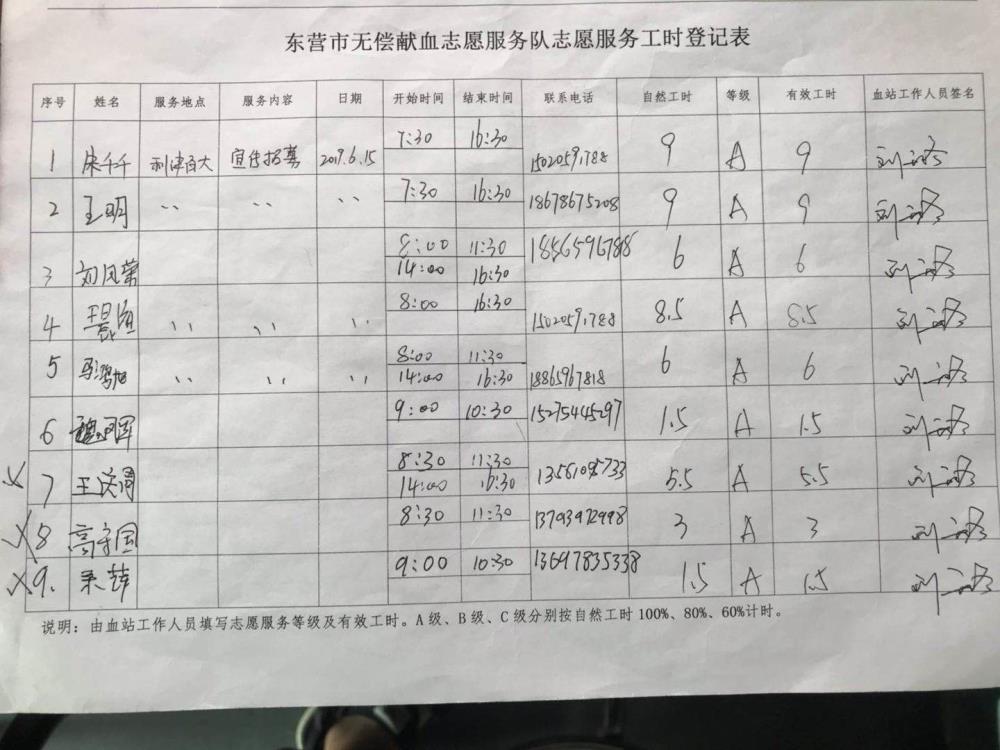 东营市无偿献血志愿服务队志愿服务工时登记表
序号 姓名 服务地点 服务内容 日期 开始时间 结束时间 联系电话 自然工时 等级 有效工时 血站工作人员签名
1 利津百大 宣传招募 2019.6.15 7:30 16:30 15020591788 9 A 9
2 王明 〃 〃 〃 7:30 16:30 18678675208 9 A 9
3 刘凤荣 8:00 11:30 1856596788 6 A 6
14:00 16:30
4 〃 〃 〃 8:00 16:30 15020591788 8.5 A 8.5
5 〃 〃 〃 8:00 11:30 18865967818 6 A 6
14:00 16:30
6 9:00 10:30 15275445297 1.5 A 1.5
7 8:30 11:30 13561095733 5.5 A 5.5
14:00 16:30
8 高守国 8:30 11:30 13793972998 3 A 3
9. 9:00 10:30 13697835338 1.5 A 1.5
说明：由血站工作人员填写志愿服务等级及有效工时。A级、B级、C级分别按自然工时100%、80%、60%计时。